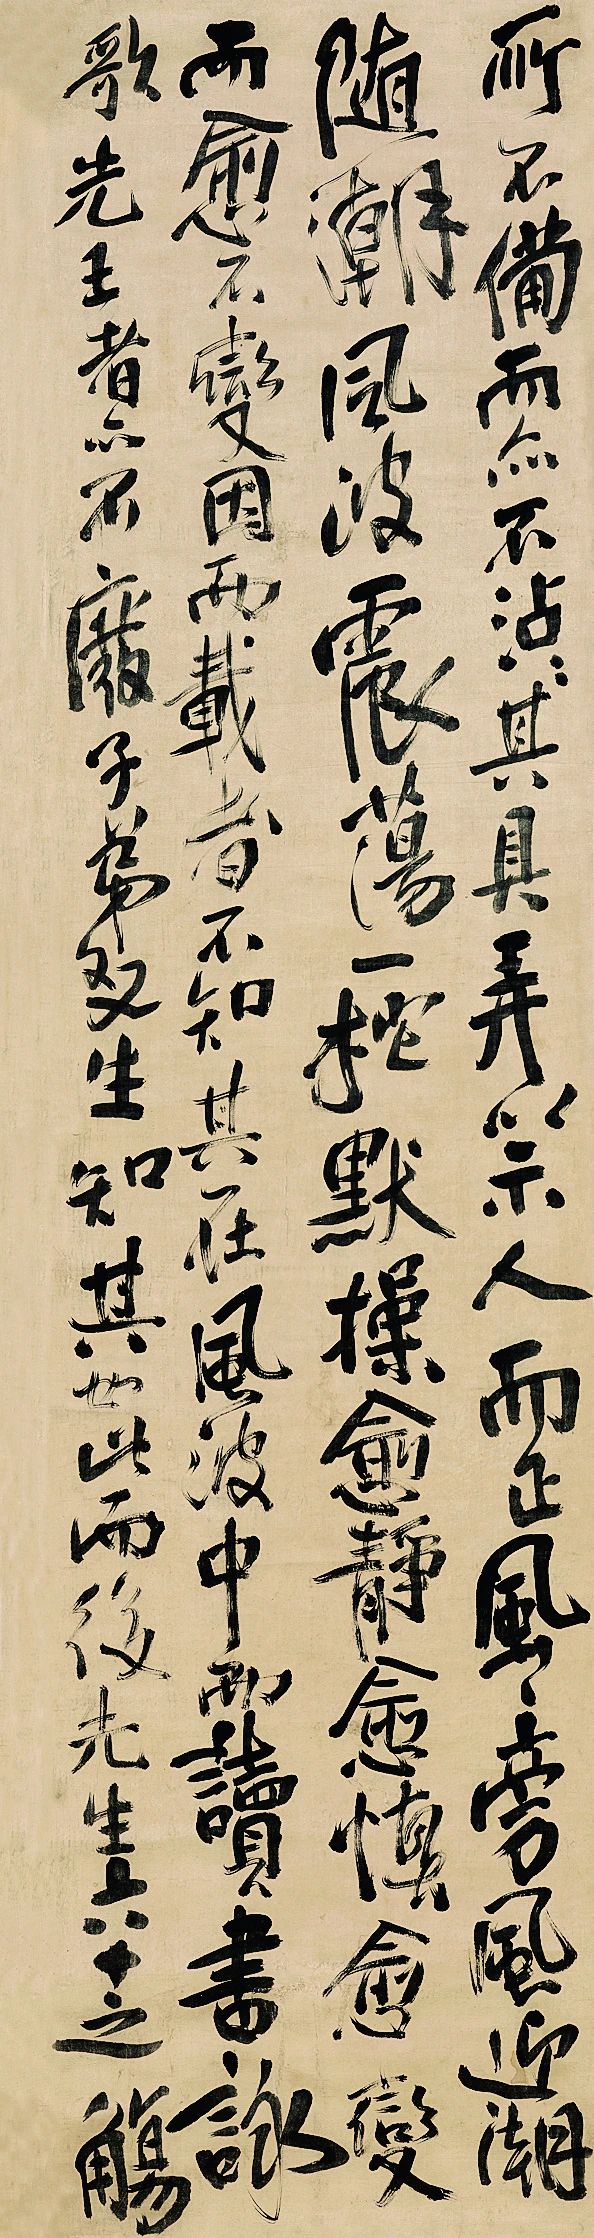 所不備而亦不沾沾其具弄以示人而正風旁風迎潮
随潮風波震蕩一柁默操愈靜愈慎愈變
而愈不變因而載者不知其在風波中而讀書詠
歌先王者亦不廢子弟父生知其如此而後先生六十之觴